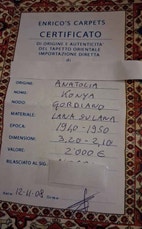 ENRICO'S CARPETS
CERTIFICATO
DI ORIGINE E AUTENTICITA'
DEL TAPPETO ORIENTALE
IMPORTAZIONE DIRETTA
di
ORIGINE: ANATOLIA
NOME: KONYA
NODO: GORDIANO
MATERIALE: LANA SU LANA
EPOCA: 1940-1950
DIMENSIONI: 3,20 - 2,10
VALORE: 2'000 €
RILASCIATO AL SIG.
12-11-08